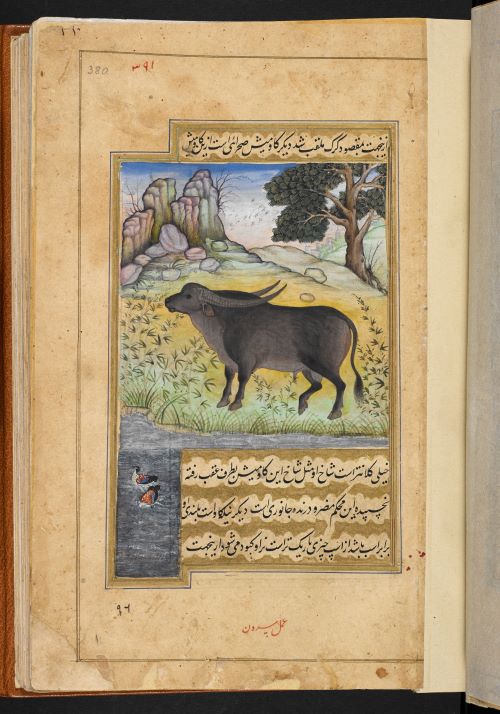 380
۳۹۱
ازینجهت بمقصود کرک ملقب شد دیگر کاومیش صحرائی است ازین کاومیش
خیلی کلانتر است شاخ او مثل شاخ این کاومیش بطرف عقب رفته
نچسپیده این محکم مضر و درنده جانوری است دیگر نیله کاو است بلندی او
برابر اسب باشد از اسپ چیزی باریکتر است نر او کبود می شود ازینجهت
۹۶
عمل